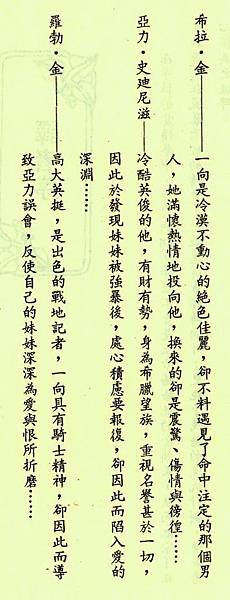 希拉・金————一向是冷漠不動心的絕色佳麗，卻不料遇見了命中注定的那個男
人，她滿懷熱情地投向他，換來的卻是震驚、傷情與徬徨……
亞力・史迪尼滋——冷酷英俊的他，有財有勢，身為希臘望族，重視名譽甚於一切，
因此於發現妹妹被強暴後，處心積慮要報復，卻因此而陷入愛的
深淵……
羅勃・金————高大英挺，是出色的戰地記者，一向具有騎士精神，卻因此而導
致亞力誤會，反使自己的妹妹深深為愛與恨所折磨……